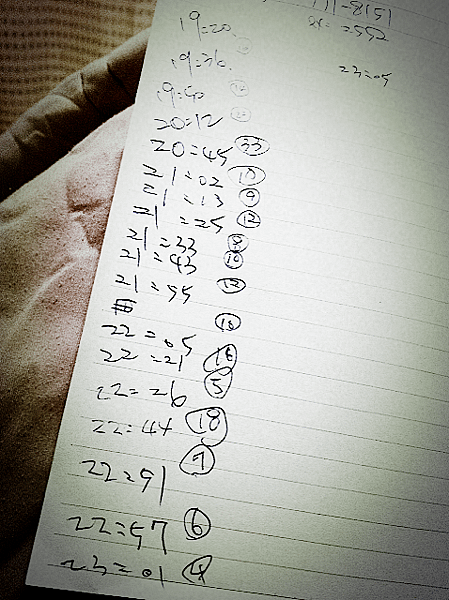 -8151
23:05
19:20
19:36
19:50
20:12
20:45 33
21:02
21:13 9
21:25 12
21:33 8
21:43 10
21:55 12
10
22:05
22:21 16
22:26 5
22:44 18
7
22:51
22:57 6
23:01 4